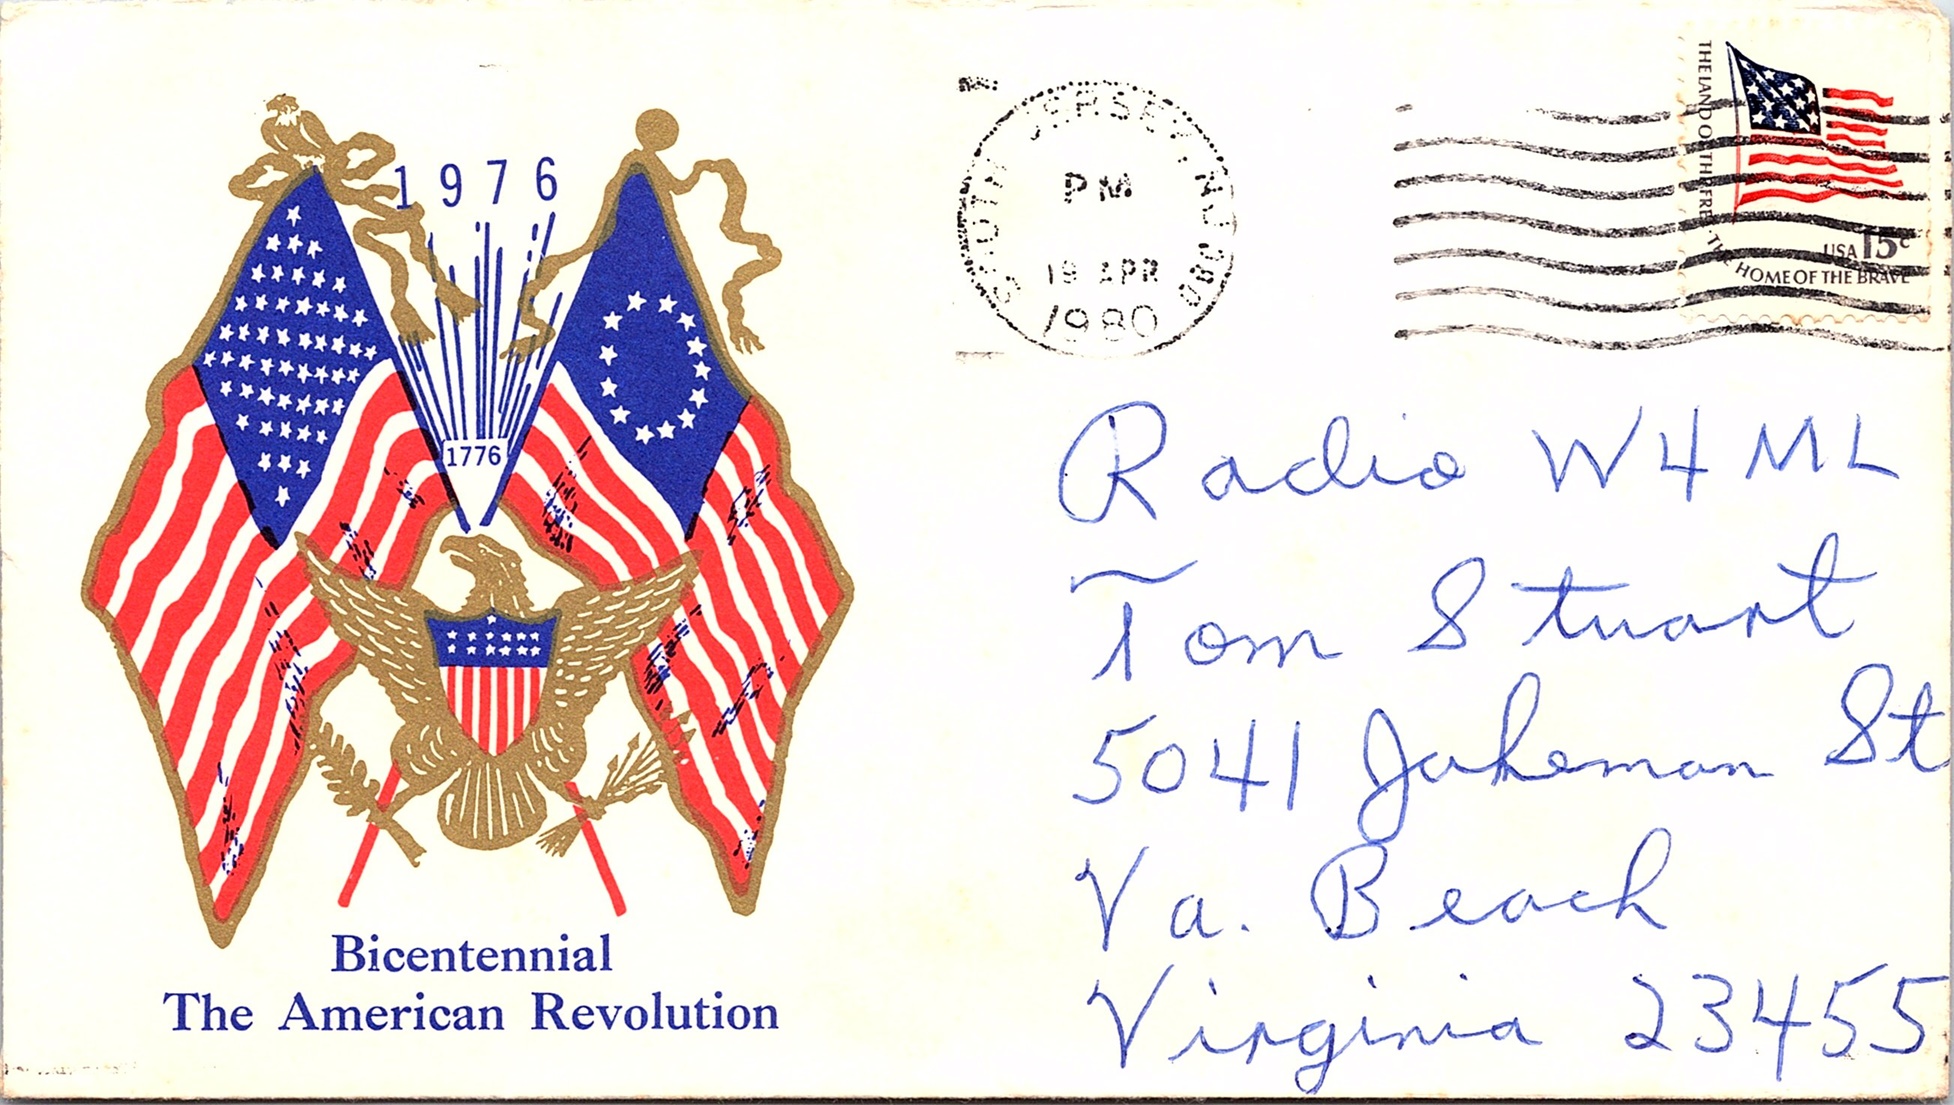 1976
1776
Bicentennial
The American Revolution
SOUTH JERSEY, NJ 080
PM
19 APR
1980
THE LAND OF THE FREE · THE HOME OF THE BRAVE
USA 15c
Radio W4ML
Tom Stuart
5041 Jakeman St
Va. Beach
Virginia 23455